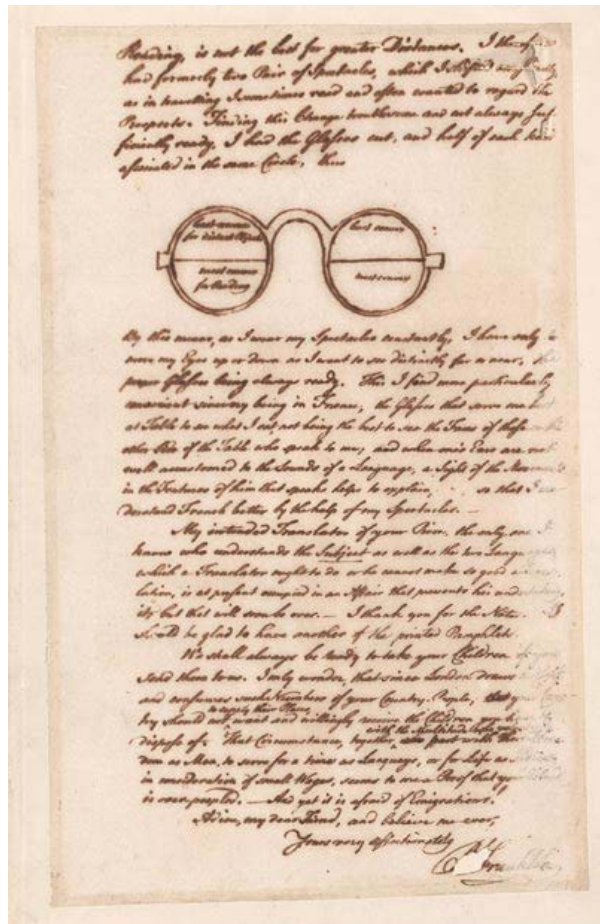 Reading, is not the best for greater Distances. I therefore
had formerly two Pair of Spectacles, which I shifted occasionally,
as in travelling I sometimes read and often wanted to regard the
Prospects. Finding this Change troublesome and not always suf-
ficiently ready, I had the Glasses cut, and half of each kind
associated in the same Circle, thus
least convex
for distant Objects
most convex
for Reading
least convex
most convex
By this means, as I wear my Spectacles constantly, I have only to
move my Eyes up or down as I want to see distinctly far or near, the
proper Glasses being always ready. This I find more particularly
convenient since my being in France, the Glasses that serve me best
at Table to see what I eat, not being the best to see the Faces of those on the
other Side of the Table who speak to me; and when one's Ears are not
well accustomed to the Sounds of a Language, a Sight of the Movements
in the Features of him that speaks helps to explain, so that I un-
derstand French better by the help of my Spectacles. —
My intended Translator of your Piece, the only one I
know who understands the Subject as well as the two Languages,
which a Translator ought to do or he cannot make so good a Trans-
lation, is at present occupied in an Affair that prevents his undertaking
it; but that will soon be over. — I thank you for the Notes. I
should be glad to have another of the printed Pamphlets.
We shall always be ready to take your Children if you
send them to us. I only wonder, that since London draws to itself
and consumes such Numbers of your Country People, that your Coun-
to supply their Places,
try should not want and willingly receive the Children you have to
dispose of. That Circumstance, together with the Multitude who
part with their Free-
dom as Men, to serve for a time as Lacqueys, or for Life as
in consideration of small Wages, seems to me a Proof that your Island
is over-peopled. — And yet it is afraid of Emigrations!
Adieu, my dear Friend, and believe me ever,
Yours very affectionately
B. Franklin